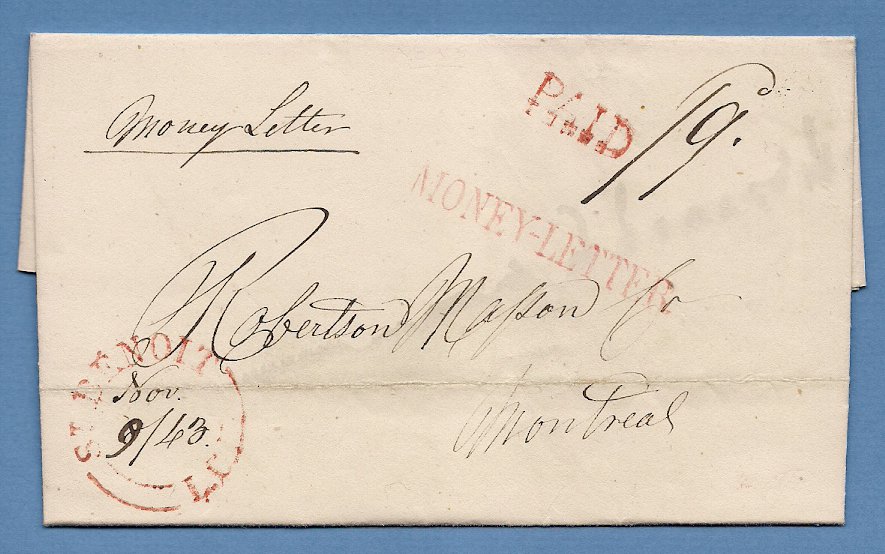 Money Letter
PAID
/9d.
MONEY-LETTER
Robertson Masson Co
Montreal
ST. BENOIT
Nov.
9/43.
L.C.